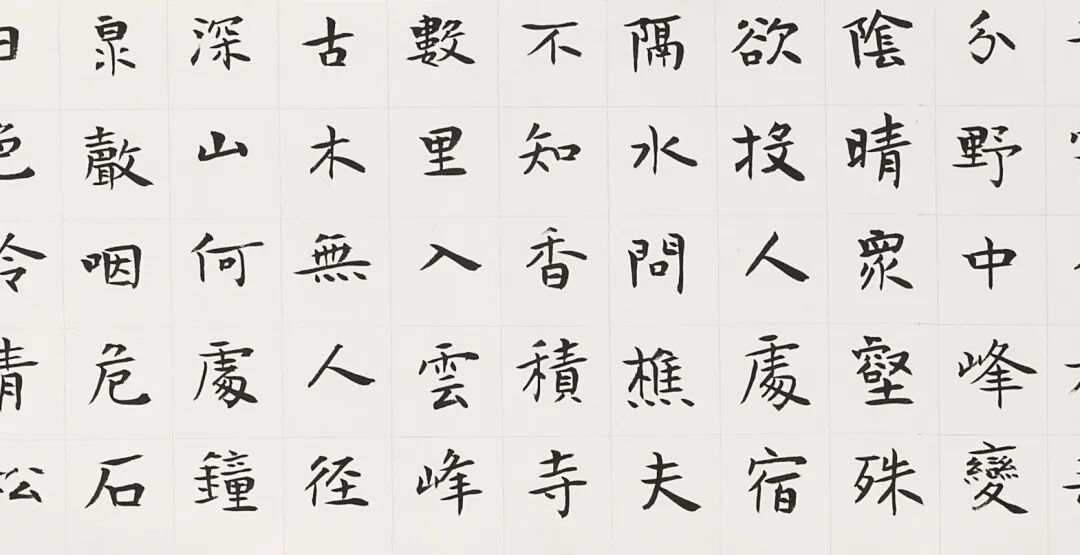 分野中峰變
陰晴眾壑殊
欲投人處宿
隔水問樵夫
不知香積寺
數里入雲峰
古木無人径
深山何處鐘
泉聲咽危石
日色冷青松